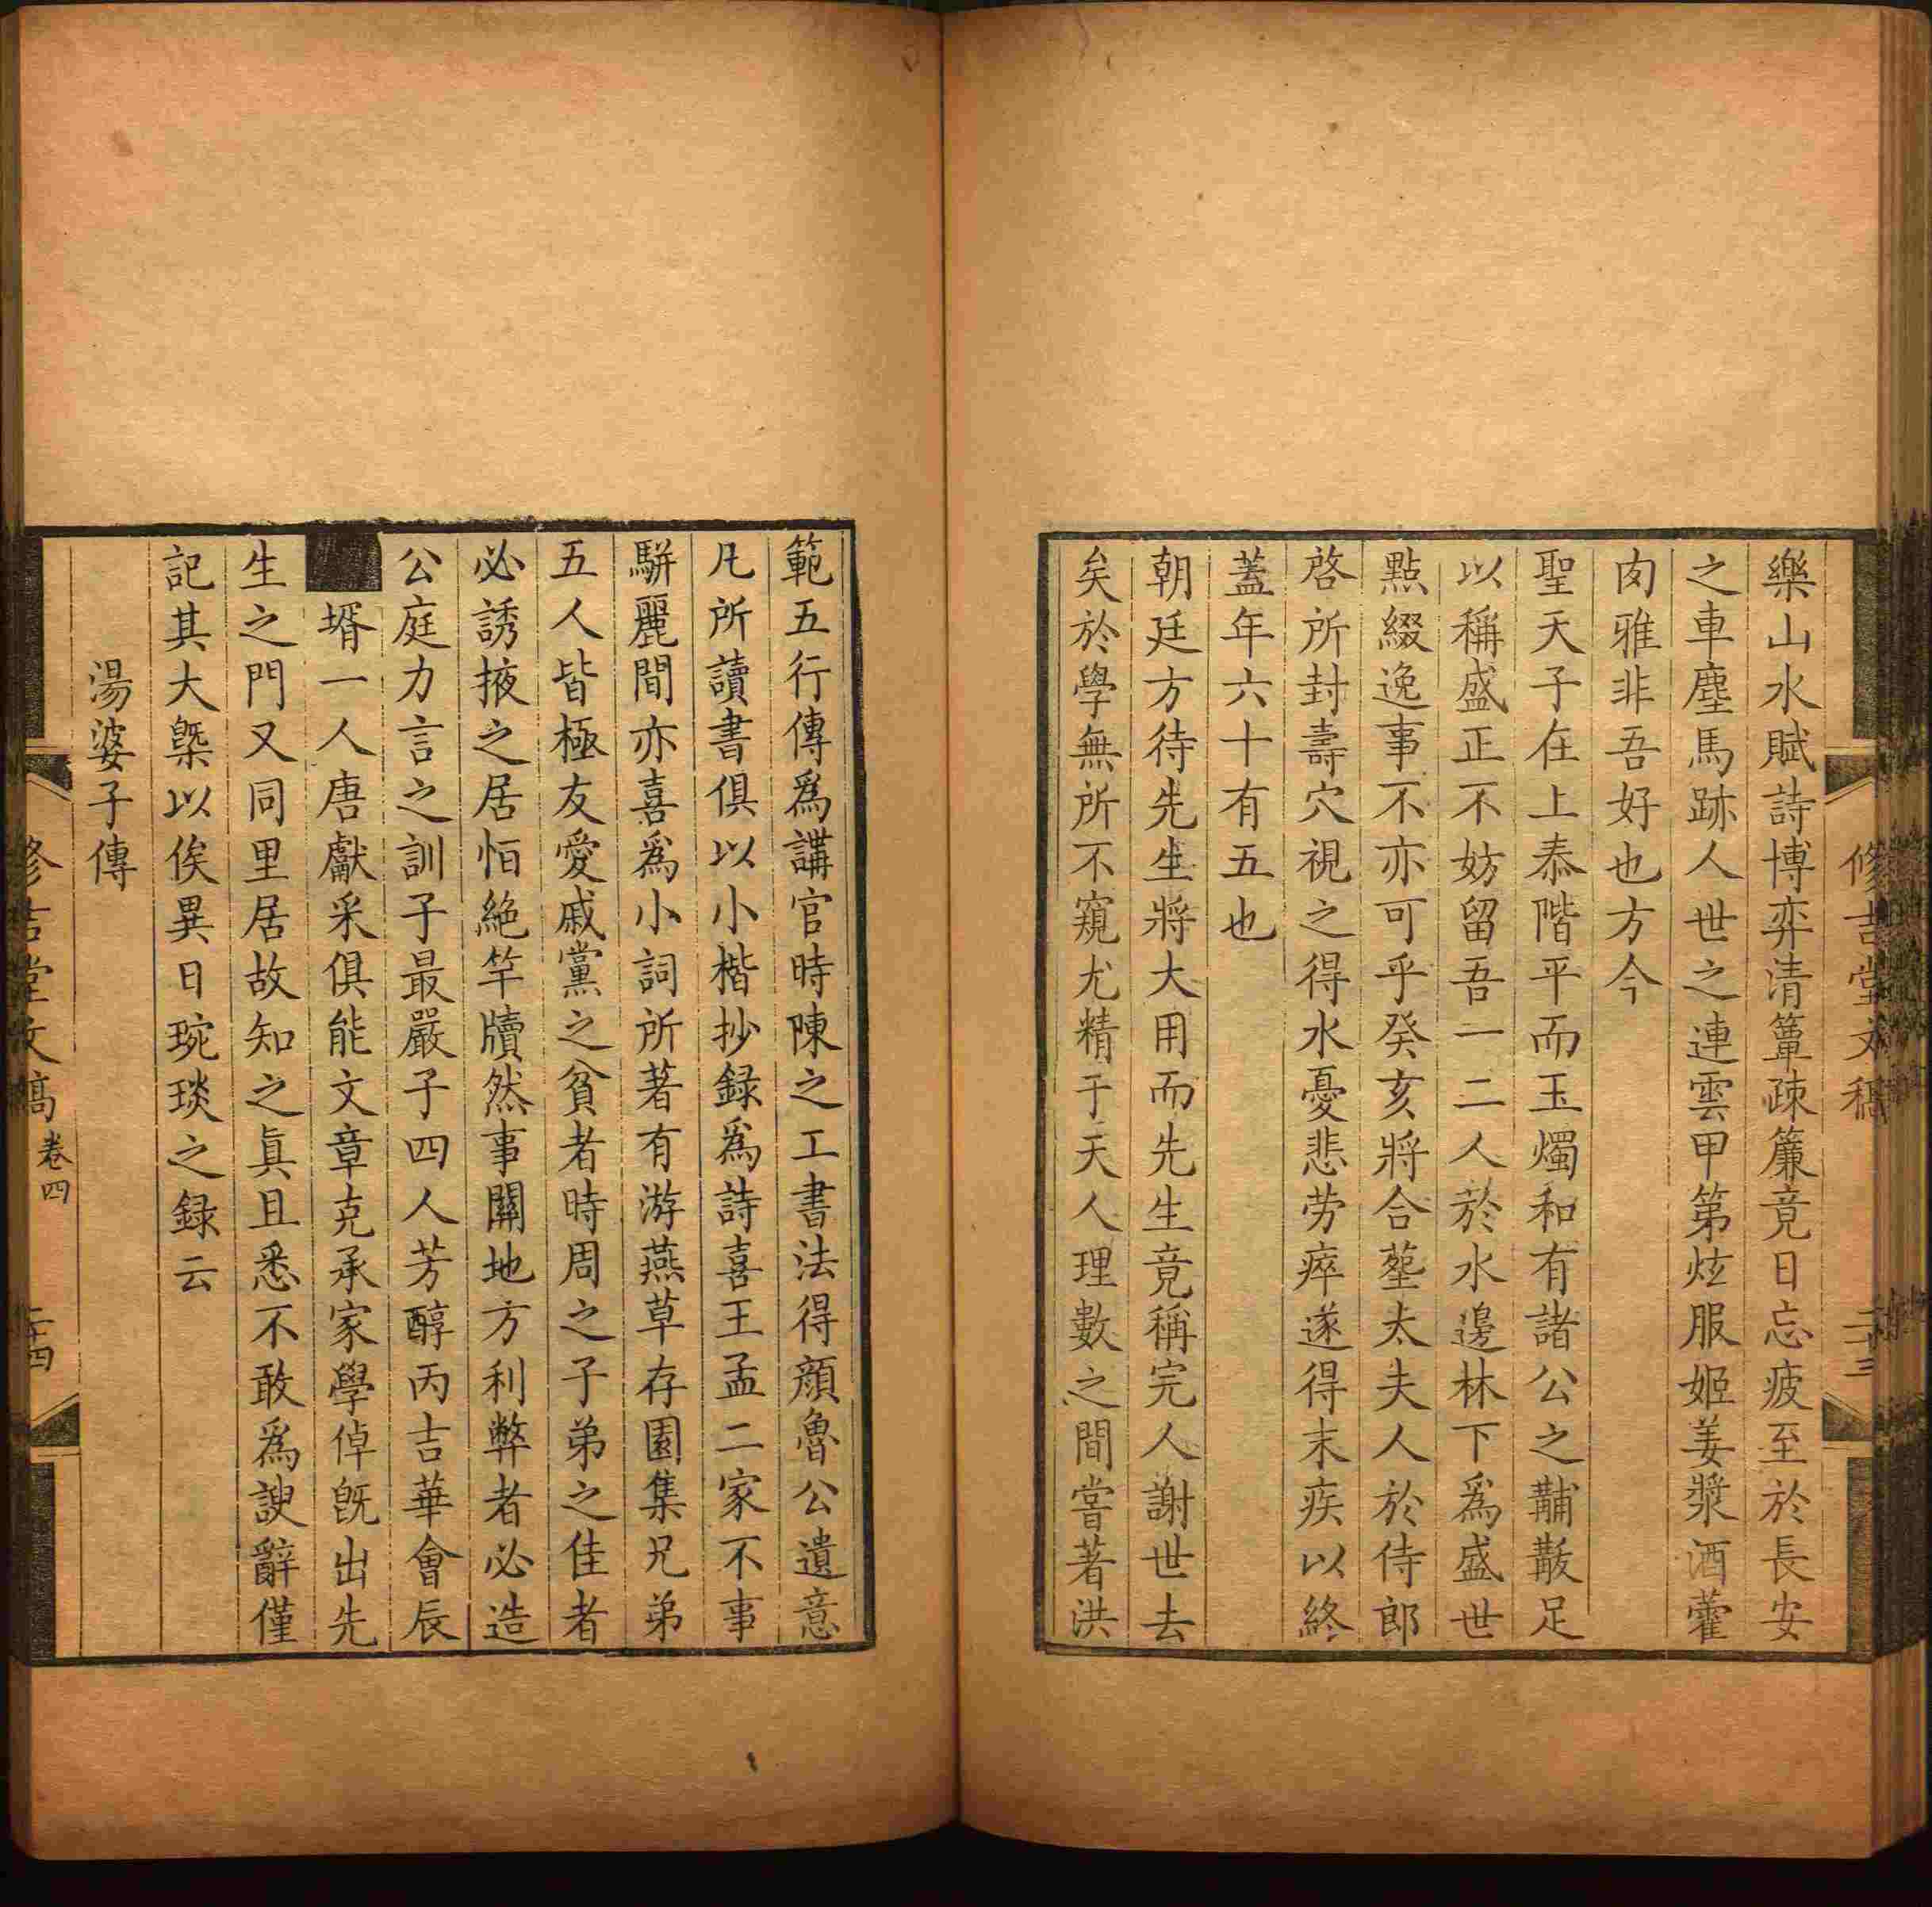 修吉堂文稿
二十三
樂山水賦詩博弈清簟疎簾竟日忘疲至於長安
之車塵馬跡人世之連雲甲第炫服姬姜漿酒藿
肉雅非吾好也方今
聖天子在上泰階平而玉燭和有諸公之黼黻足
以稱盛正不妨留吾一二人於水邊林下爲盛世
點綴逸事不亦可乎癸亥將合塟太夫人於侍郎
啓所封壽穴視之得水憂悲劳瘁遂得末疾以終
蓋年六十有五也
朝廷方待先生將大用而先生竟稱完人謝世去
矣於學無所不窺尤精于天人理數之間嘗著洪
範五行傳爲講官時陳之工書法得顔魯公遺意
凡所讀書俱以小楷抄録爲詩喜王孟二家不事
駢麗間亦喜爲小詞所著有游燕草存園集兄弟
五人皆極友愛戚黨之貧者時周之子弟之佳者
必誘掖之居恒絶竿牘然事關地方利弊者必造
公庭力言之訓子最嚴子四人芳醇丙吉華會辰
壻一人唐獻采俱能文章克承家學倬既出先
生之門又同里居故知之眞且悉不敢爲諛辭僅
記其大槩以俟異日琬琰之録云
湯婆子傳
修吉堂文稿
卷四
二十四